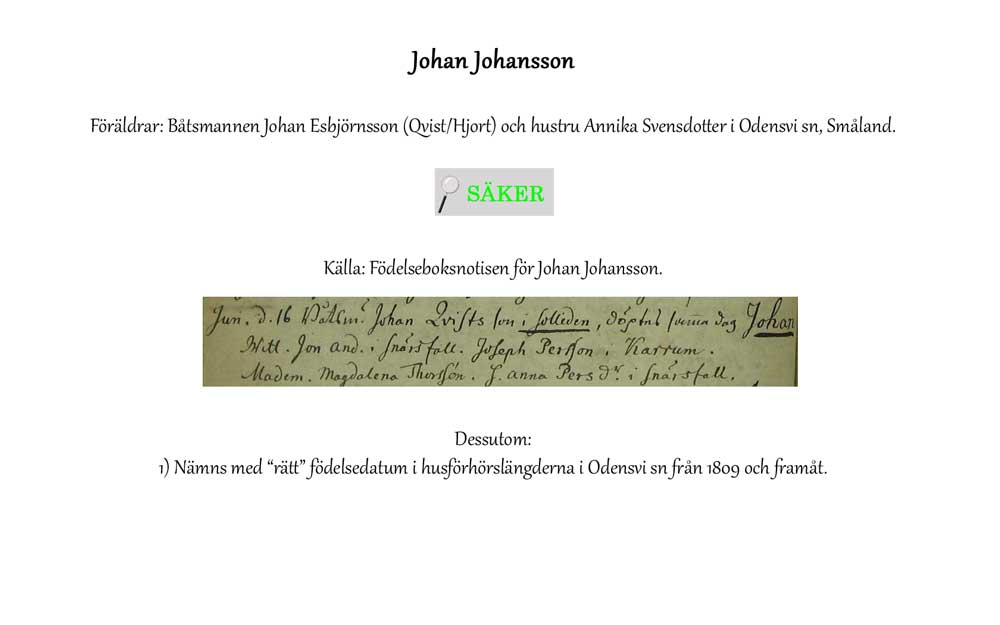 Johan Johansson
Föräldrar: Båtsmannen Johan Esbjörnsson (Qvist/Hjort) och hustru Annika Svensdotter i Odensvi sn, Småland.
SÄKER
Källa: Födelseboksnotisen för Johan Johansson.
Jun. d. 16 Båtsm. Johan Qvists son i, döptes samma dag Johan
Witt. Jon And. i Snärsfall. Joseph Persson i Karrum.
Madem. Magdalena. P. Anna Pers Dr. i Snärsfall.
Dessutom:
1) Nämns med “rätt” födelsedatum i husförhörslängderna i Odensvi sn från 1809 och framåt.